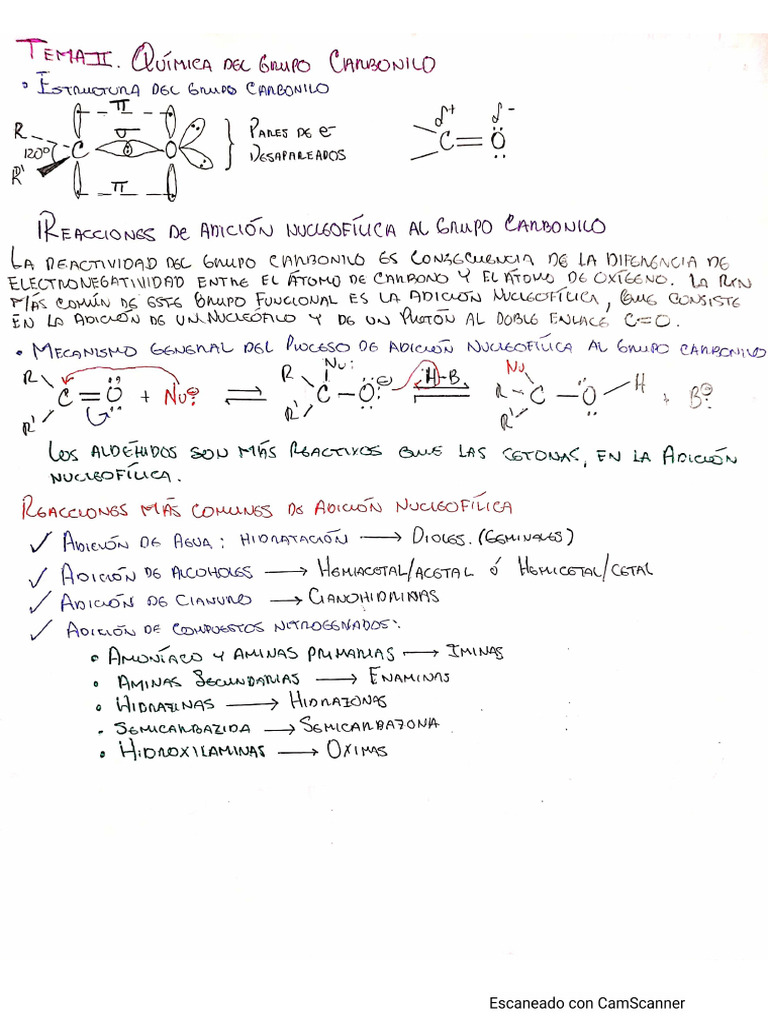 TEMA II. QUÍMICA DEL GRUPO CARBONILO
• ESTRUCTURA DEL GRUPO CARBONILO
R R' 120° C O π σ π
PARES DE e-
DESAPAREADOS
δ+ δ-
C=O
REACCIONES DE ADICIÓN NUCLEOFÍLICA AL GRUPO CARBONILO
LA REACTIVIDAD DEL GRUPO CARBONILO ES CONSECUENCIA DE LA DIFERENCIA DE
ELECTRONEGATIVIDAD ENTRE EL ÁTOMO DE CARBONO Y EL ÁTOMO DE OXÍGENO. LA RXN
MÁS COMÚN DE ESTE GRUPO FUNCIONAL ES LA ADICIÓN NUCLEOFÍLICA, QUE CONSISTE
EN LA ADICIÓN DE UN NUCLEÓFILO Y DE UN PROTÓN AL DOBLE ENLACE C=O.
• MECANISMO GENERAL DEL PROCESO DE ADICIÓN NUCLEOFÍLICA AL GRUPO CARBONILO
R R' C=O + Nu:⊖ ⇌ R R' Nu: C-O⊖ H-B ⇌ Nu R R' C-O H + B:⊖
LOS ALDEHIDOS SON MÁS REACTIVOS QUE LAS CETONAS, EN LA ADICIÓN
NUCLEOFÍLICA.
REACCIONES MÁS COMUNES DE ADICIÓN NUCLEOFÍLICA
✓ ADICIÓN DE AGUA: HIDRATACIÓN → DIOLES. (GEMINALES)
✓ ADICIÓN DE ALCOHOLES → HEMIACETAL/ACETAL ó HEMICETAL/CETAL
✓ ADICIÓN DE CIANURO → CIANOHIDRINAS
✓ ADICIÓN DE COMPUESTOS NITROGENADOS:
• AMONÍACO Y AMINAS PRIMARIAS → IMINAS
• AMINAS SECUNDARIAS → ENAMINAS
• HIDRAZINAS → HIDRAZONAS
• SEMICARBAZIDA → SEMICARBAZONA
• HIDROXILAMINAS → OXIMAS
Escaneado con CamScanner